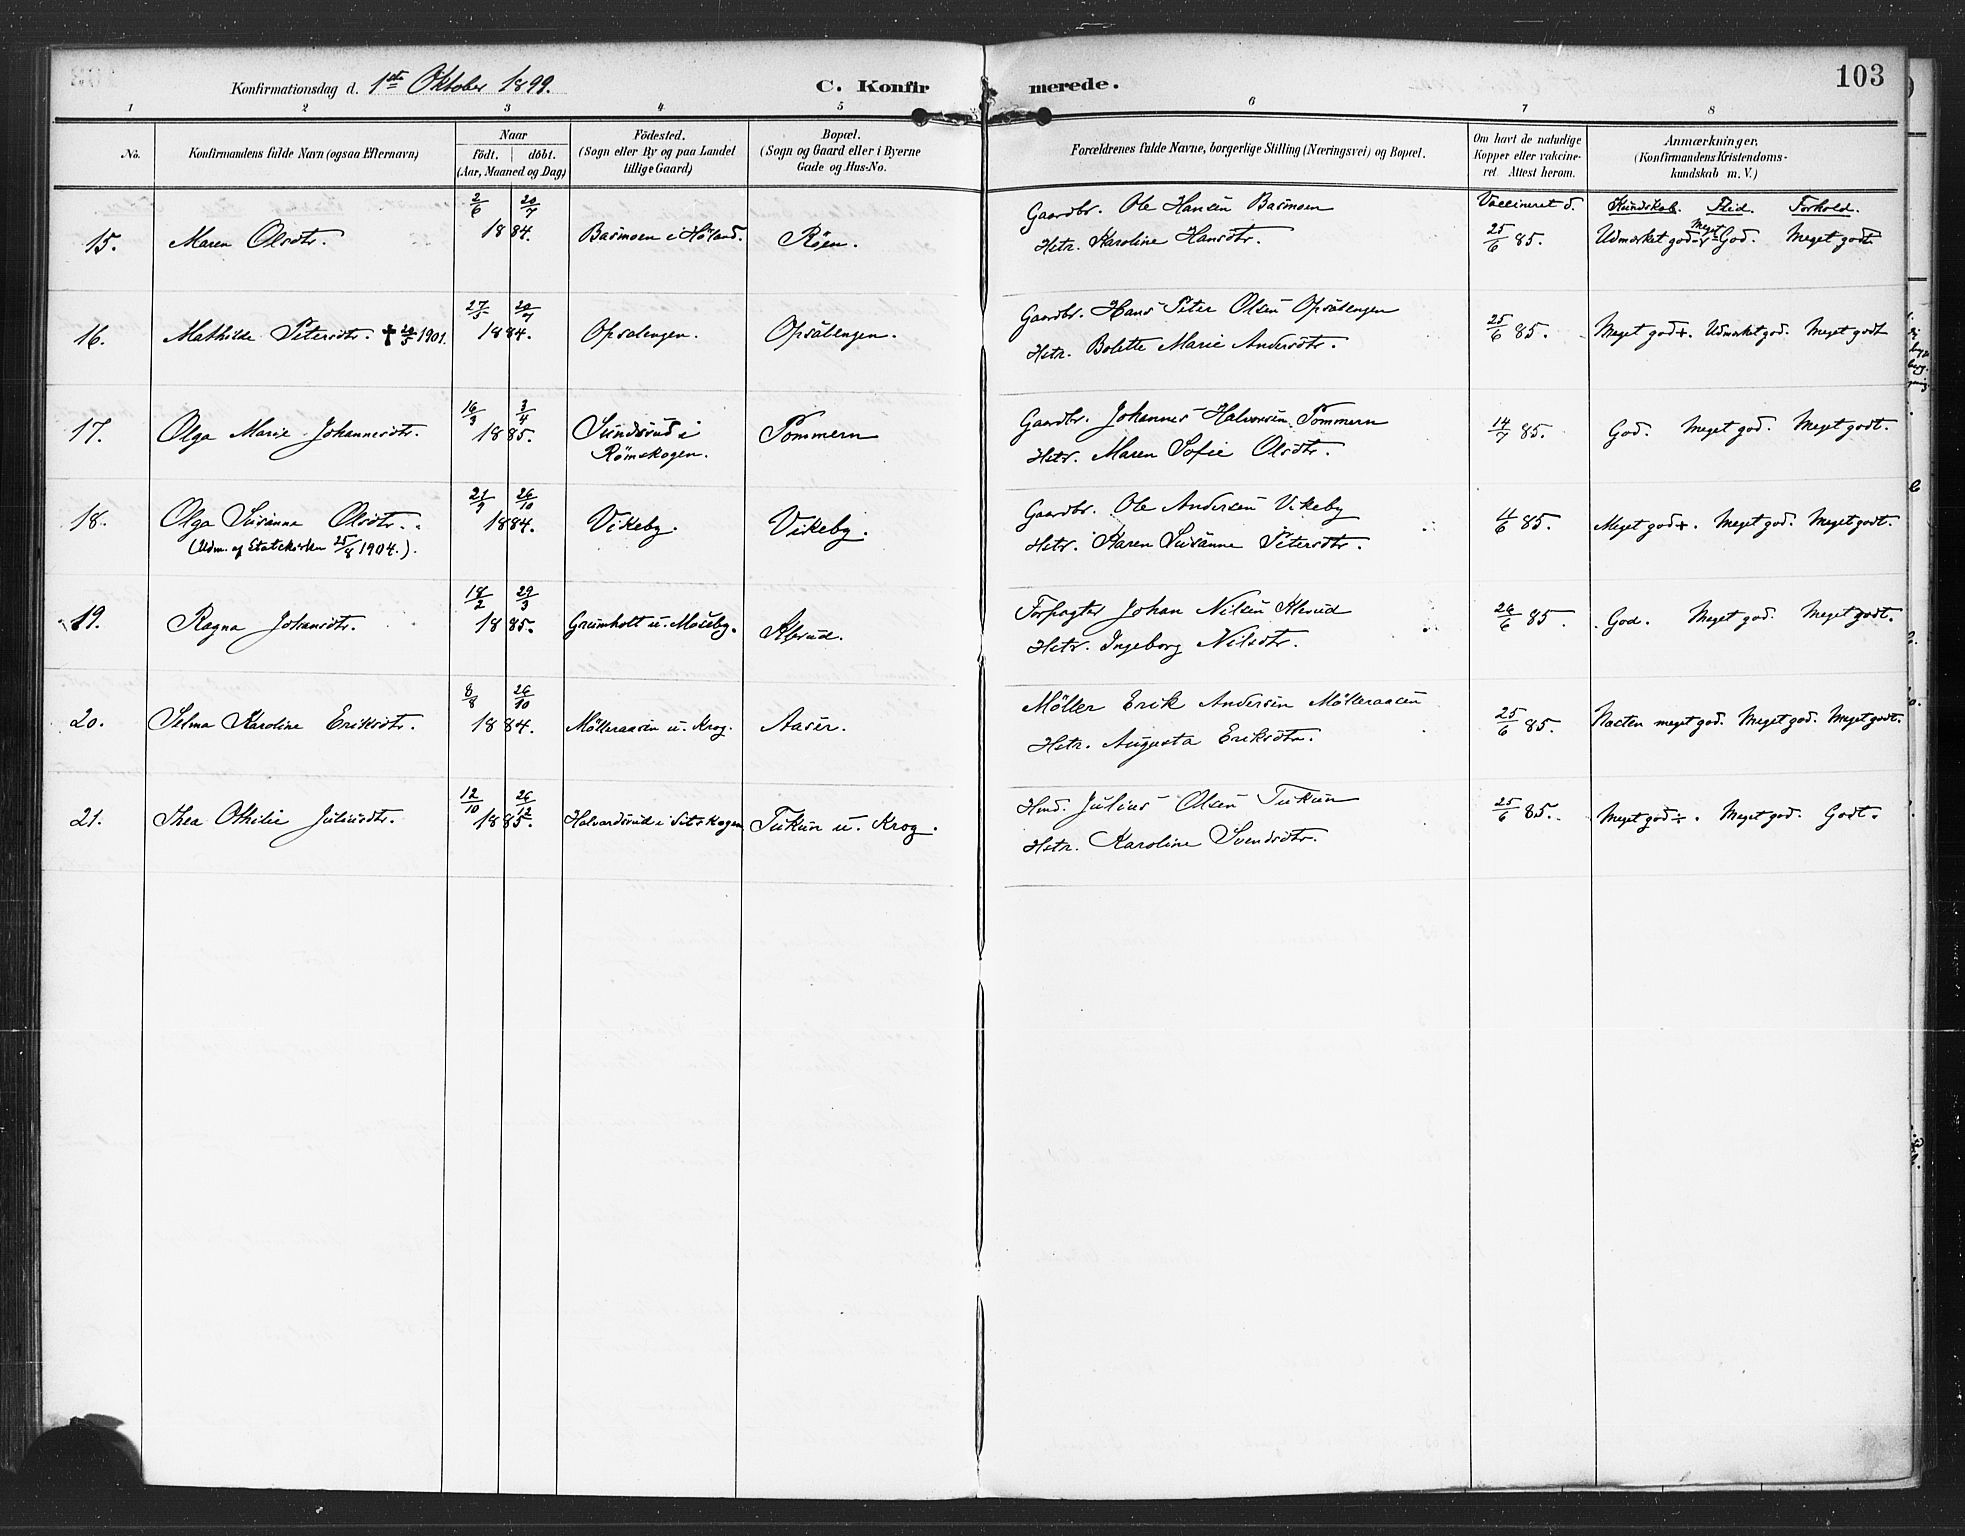 Konfirmationsdag d. 1ste Oktober 1899. C. Konfirmerede. 103
1 2 3 4 5 6 7 8
No. Konfirmandens fulde Navn (ogsaa Efternavn) Naar födt. döbt. (Aar, Maaned og Dag) Födested. (Sogn eller By og paa Landet tillige Gaard) Bopæl. (Sogn og Gaard eller i Byerne Gade og Hus-No. Forældrenes fulde Navne, borgerlige Stilling (Næringsvei) og Bopæl. Om havt de naturlige Kopper eller vakcineret. Attest herom. Anmærkninger. (Konfirmandens Kristendomskundskab m. V.)
Vaccineret d. Kundskab. Flid. Forhold.
15. Maren Olsdtr. 2/6 20/7 1884. Basmoen i Höland. Röen. Gaardbr. Ole Hansen Basmoen
Hstr. Karoline Hansdtr. 25/6 85. Udmærket god÷ Meget God. Meget godt
16. Mathilde Petersdtr. ✝ 1901. 27/5 20/7 1884. Opsalengen. Opsalengen. Gaardbr. Hans Peter Olsen Opsalengen
Hstr. Bolette Marie Andersdtr. 25/6 85. Meget god+. Udmærket god. Meget godt
17. Olga Marie Johannesdtr. 16/3 3/4 1885. Sundsrud i Römskogen. Tommern Gaardbr. Johannes Halvorsen Tommern
Hstr. Maren Sofie Olsdtr. 14/7 85. God. Meget god. Meget godt.
18. Olga Susanne Olsdtr. 26/10 1884. Vikeby. Vikeby. Gaardbr. Ole Andersen Vikeby
(Udm. af Statskirken 25/8 1904.). Hstr. Karen Susanne Petersdtr. 4/6 85. Meget god+. Meget god. Meget godt.
19. Ragna Johansdtr. 18/2 29/3 1885. Grumholt u. Moseby. Klerud. Forpagter Johan Nilsen Klerud
Hstr. Ingeborg Nilsdtr. 26/6 85. God. Meget god. Meget godt.
20. Selma Karoline Eriksdtr. 8/8 26/10 1884. Mölleraasen u. Krog. Aaser. Möller Erik Andersen Mölleraasen
Hstr. Augusta Eriksdtr. 25/6 85. Næsten meget god. Meget god. Meget godt.
21. Thea Othilie Juliusdtr. 12/10 26/12 1885. Halvardsrud i Setskogen Tukun u. Krog. Hmd. Julius Olsen Tukun
Hstr. Karoline Svendsdtr. 25/6 85. Meget god÷. Meget god. Godt.